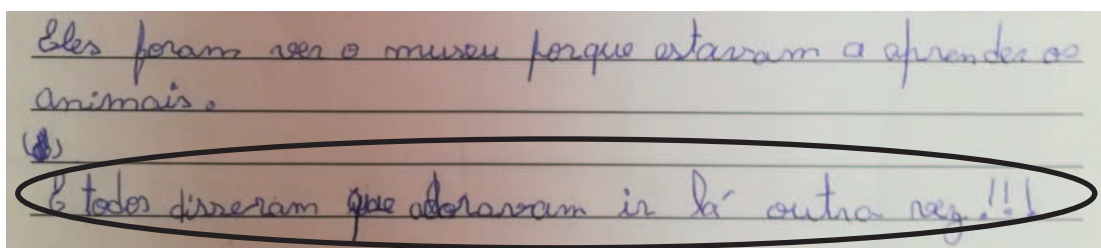 Eles foram ver o museu porque estavam a aprender os
animais.
E todos disseram que adoravam ir lá outra vez!!!